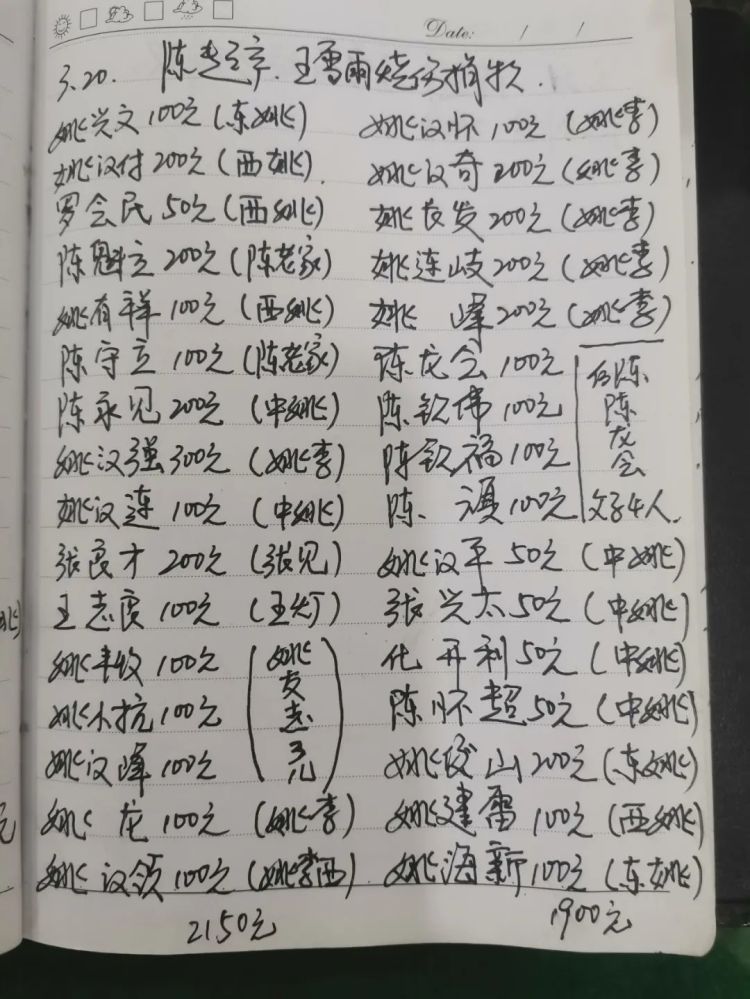 Date: / /
3.20. 陈楚淳.王雪雨烧伤捐款.
姚兴文100元(东姚)
姚汉付200元(西姚).
罗会民50元(西姚)
陈魁立200元(陈老家)
姚有祥100元(西姚)
陈守立100元(陈老家)
陈永见200元(中姚)
姚汉强300元(姚李)
姚汉连100元(中姚)
张良才200元(张见)
王志良100元(王灯)
姚丰收100元
姚小抗100元
姚汉峰100元
(姚友志3儿)
姚龙100元(姚李)
姚汉领100元(姚李西)
2150元
姚汉怀100元(姚李)
姚汉奇200元(姚李)
姚友发200元(姚李)
姚连岐200元(姚李)
姚峰200元(姚李)
陈龙会100元
陈钦伟100元
陈钦福100元
陈.灏100元
陈
陈龙会
父子4人.
姚汉平50元(中姚)
张兴太50元(中姚)
化开利50元(中姚)
陈怀超50元(中姚)
姚俊山200元(东姚)
姚建雷100元(西姚)
姚海新100元(东姚)
1900元